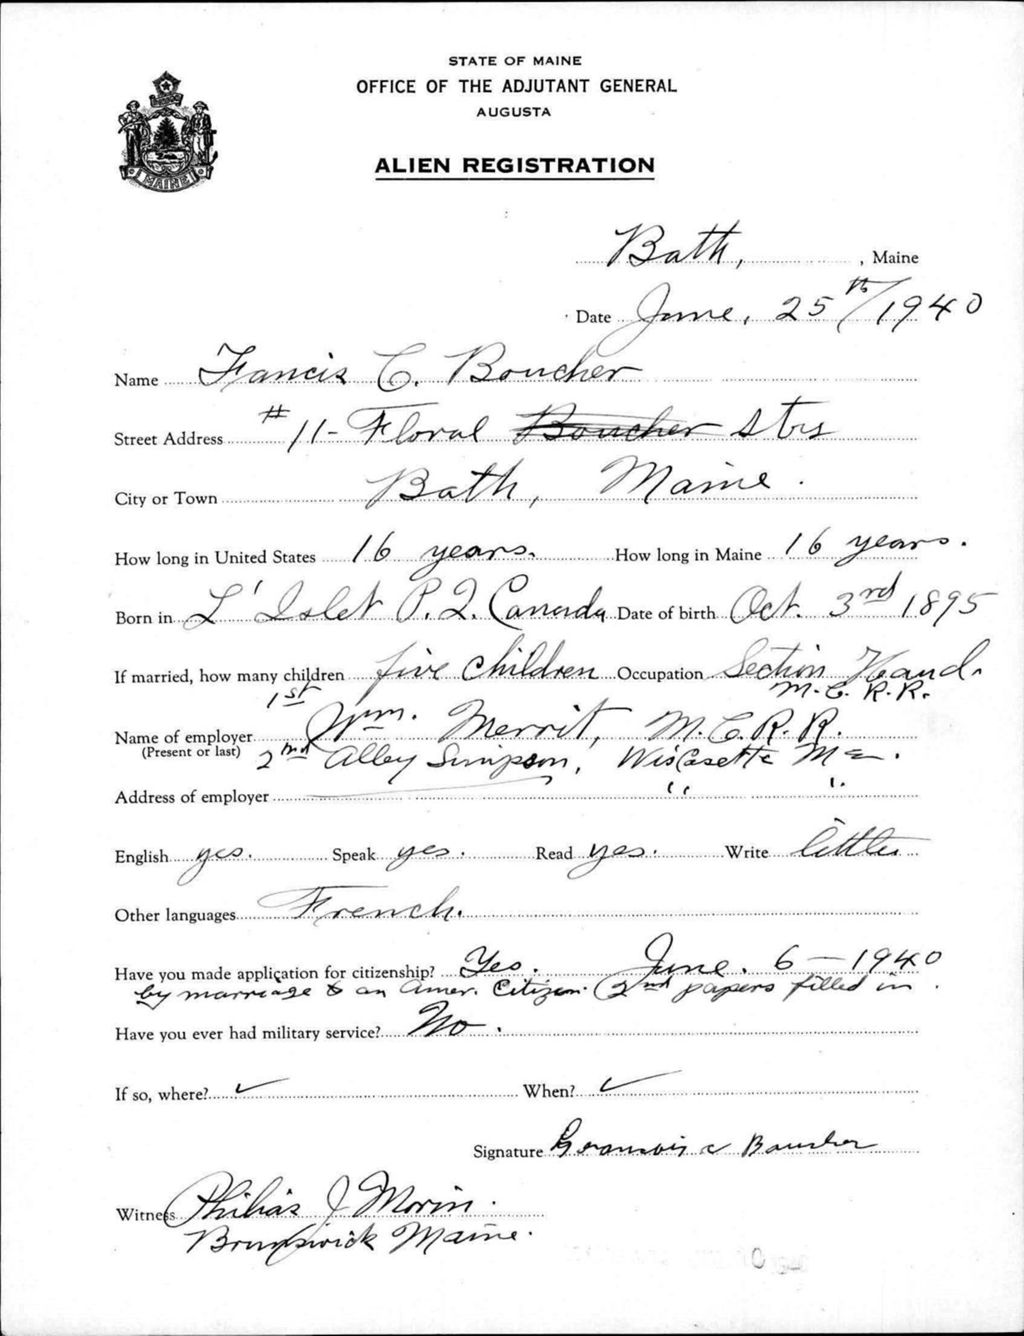 STATE OF MAINE
OFFICE OF THE ADJUTANT GENERAL
AUGUSTA
ALIEN REGISTRATION
MAINE
Bath, , Maine
Date June, 25th/1940
Name Francis C. Boucher
Street Address #11- Floral Boucher Strs
City or Town Bath, Maine.
How long in United States 16 years. How long in Maine 16 years.
Born in L'Islet P.Q. Canada Date of birth Oct. 3rd 1895
If married, how many children five children Occupation Section Hand.
1st M.C.R.R.
Name of employer Wm. Merrit, M.C.R.R.
(Present or last) 2nd Alley Simpson, Wiscasette Me.
Address of employer " "
English yes. Speak yes. Read yes. Write little
Other languages French.
Have you made application for citizenship? Yes. June. 6-1940
by marriage to an Amer. Citizen. (2nd papers filled in.
Have you ever had military service? No.
If so, where? ✓ When? ✓
Signature Franswis c Baucher
Witness Philias J Morin.
Brunswick Maine.